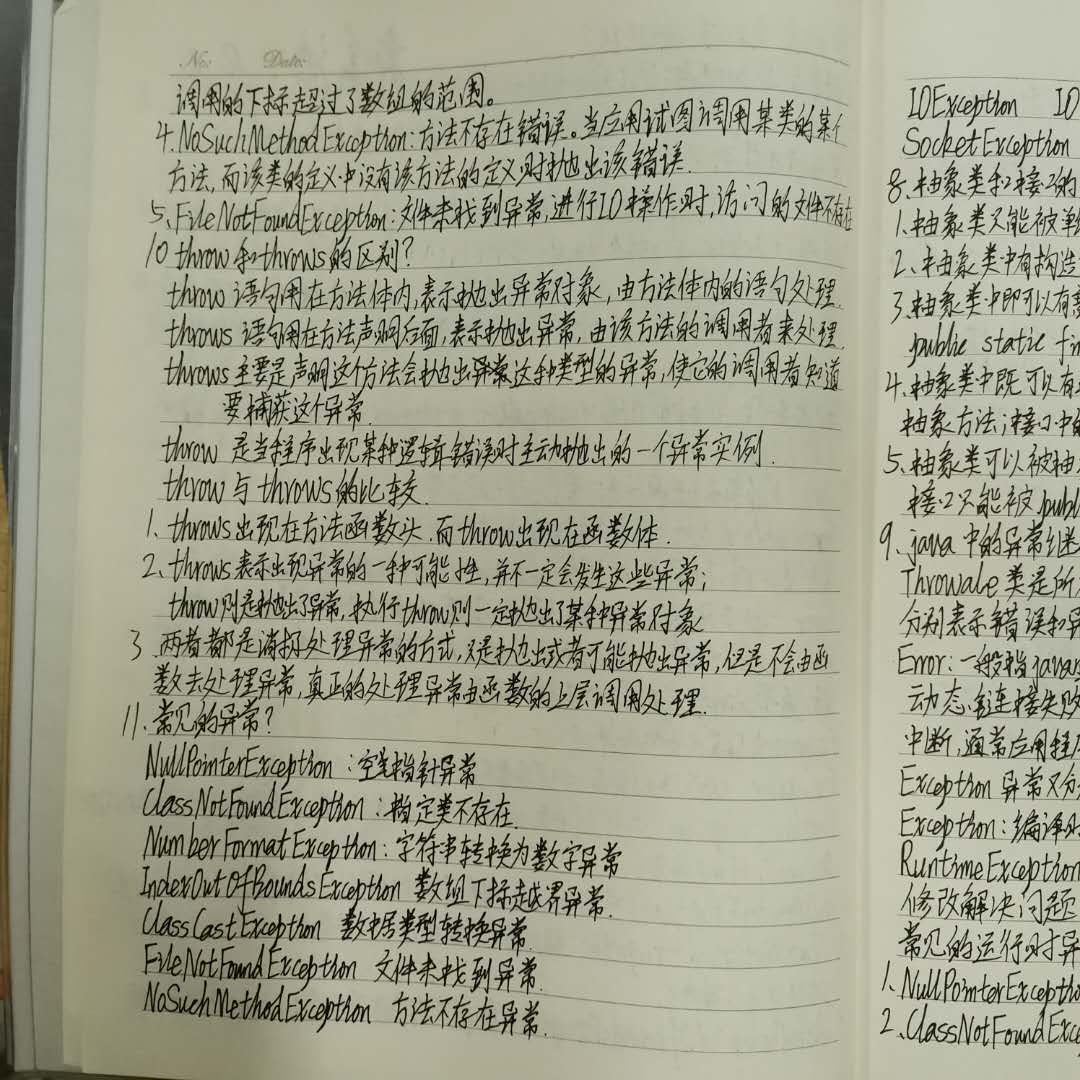 No: Date:
调用的下标超过了数组的范围。
4.NoSuchMethodException:方法不存在错误。当应用试图调用某类的某个
方法,而该类的定义中没有该方法的定义时抛出该错误.
5、FileNotFoundException:文件未找到异常,进行IO操作时,访问的文件不存在
10 throw和throws的区别?
throw 语句用在方法体内,表示抛出异常对象,由方法体内的语句处理.
throws 语句用在方法声明后面,表示抛出异常,由该方法的调用者来处理.
throws 主要是声明这个方法会抛出异常这种类型的异常,使它的调用者知道
要捕获这个异常.
throw 是当程序出现某种逻辑错误时主动抛出的一个异常实例.
throw 与 throws 的比较.
1. throws出现在方法函数头.而throw出现在函数体.
2、throws表示出现异常的一种可能性,并不一定会发生这些异常;
throw则是抛出了异常,执行throw则一定抛出了某种异常对象
3.两者都是消极处理异常的方式,只是抛出或者可能抛出异常,但是不会由函
数去处理异常,真正的处理异常由函数的上层调用处理.
11.常见的异常?
NullPointerException:空指针异常
ClassNotFoundException:指定类不存在.
NumberFormatException:字符串转换为数字异常
IndexOutOfBoundsException 数组下标越界异常.
ClassCastException 数据类型转换异常.
FileNotFoundException 文件未找到异常.
NoSuchMethodException 方法不存在异常.
IOException IO
SocketException
8.抽象类和接口的
1.抽象类只能被单
2、抽象类中有构造
3、抽象类中即可以有
public static fin
4、抽象类中既可以有
抽象方法;接口中的
5、抽象类可以被抽
接口只能被publ
9、java 中的异常继
Throwale 类是所
分别表示错误和异
Error:一般指java
动态链连接失败
中断,通常应用程
Exception 异常又分
Exception:编译时
RuntimeException
修改解决问题
常见的运行时异
1、NullPointerExceptio
2、ClassNotFoundExce